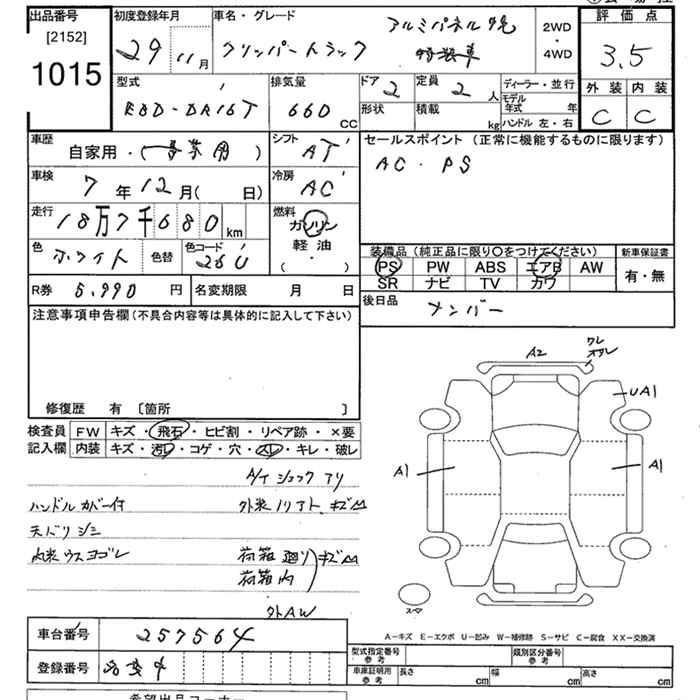 出品番号 初度登録年月 車名・グレード アルミパネル 2WD 評価点
[2152] 29 11月 クリッパートラック 特装車 ・4WD 3.5
1015 型式 排気量 ドア 2 定員 2人 ディーラー・並行 外装 内装
EBD-DR16T 660 CC 形状 積載 kg モデル年式 年 ハンドル 左・右 C C
車歴 自家用・(事業用) シフト AT セールスポイント (正常に機能するものに限ります)
車検 7年12月(日) 冷房 AC AC・PS
走行 18万7千680km 燃料 ガソリン
軽油
(・)
色 ホワイト 色替 色コード 26U 装備品 (純正品に限り〇をつけてください) 新車保証書
PS PW ABS エアB AW 有・無
SR ナビ TV カワ
R券 5,990円 名変期限 月 日 後日品 ナンバー
注意事項申告欄(不具合内容等は具体的に記入して下さい)
修復歴 有 〔箇所 〕
検査員 FW キズ・飛石・ヒビ割・リペア跡・×要
記入欄 内装 キズ・汚レ・コゲ・穴・スレ・キレ・破レ
A/T ショック アリ
ハンドルカバー付
天バリ シミ
内装ウスヨゴレ 荷箱廻り キズ凹
荷箱内
社外AW
A2 ワレ
UA1
A1 A1
スマ
A−キズ E−エクボ U−凹み W−補修跡 S−サビ C−腐食 XX−交換済
車台番号 257564
登録番号
型式指定番号 参考 類別区分番号 参考
車庫証明用 参考 長さ cm 幅 cm 高さ cm
希望出品コーナー